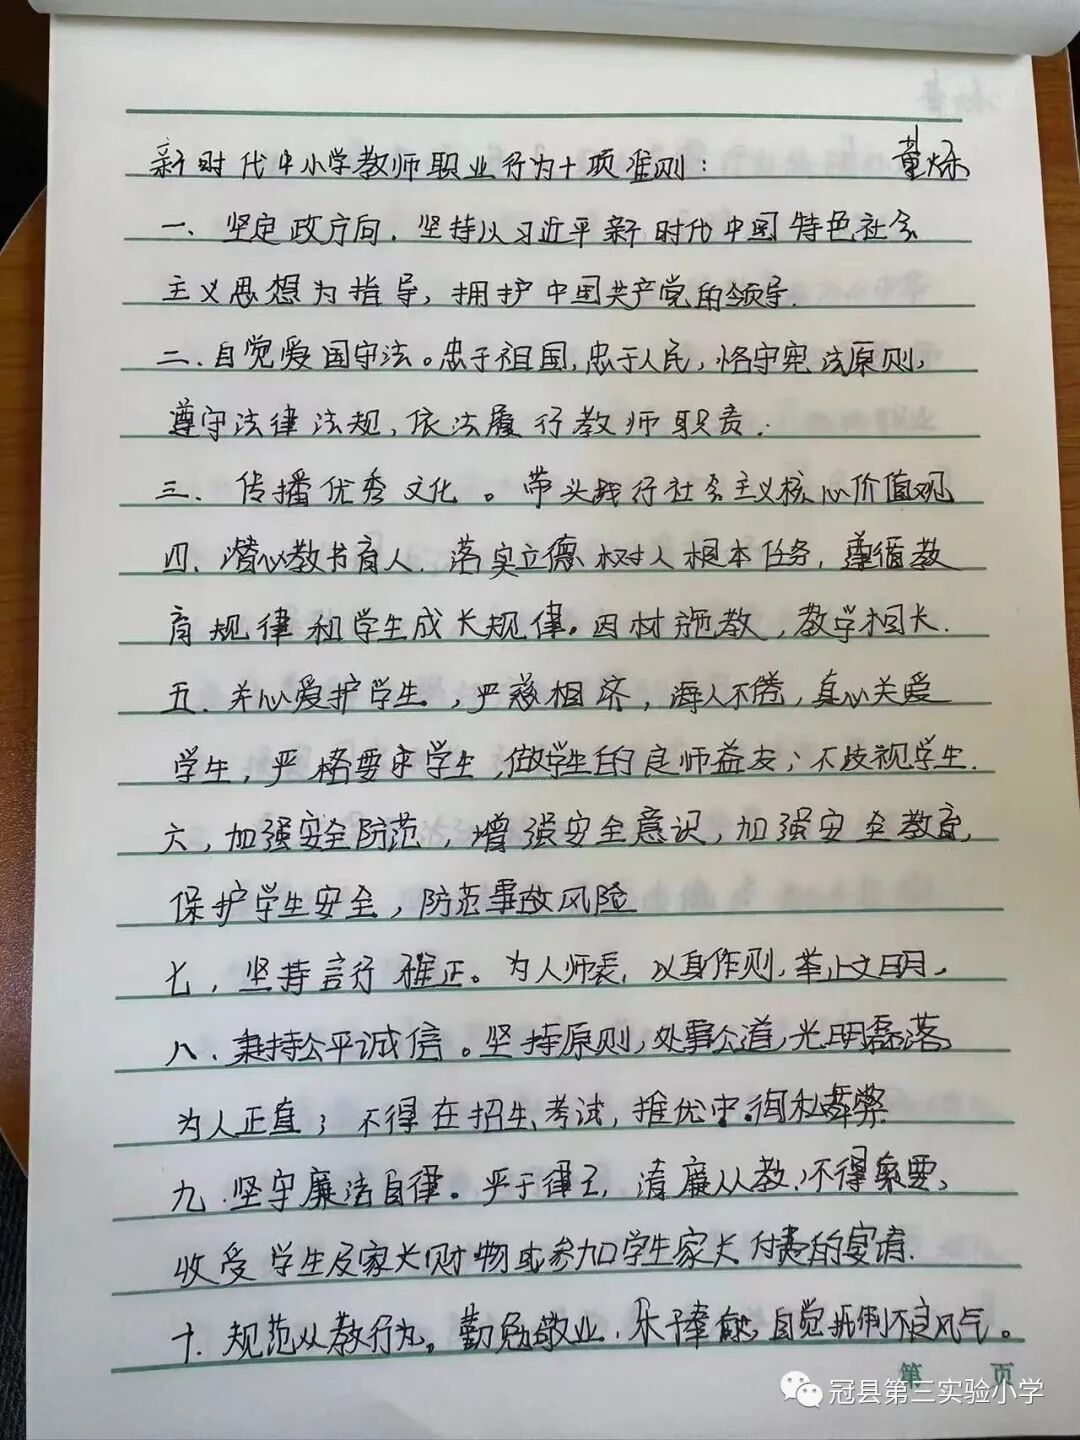 新时代中小学教师职业行为十项准则: 董烁
一、坚定政方向.坚持以习近平新时代中国特色社会
主义思想为指导,拥护中国共产党的领导.
二.自觉爱国守法。忠于祖国,忠于人民,恪守宪法原则,
遵守法律法规,依法履行教师职责.
三、传播优秀文化。带头践行社会主义核心价值观
四、潜心教书育人.落实立德树人根本任务,遵循教
育规律和学生成长规律。因材施教,教学相长.
五.关心爱护学生,严慈相济,诲人不倦,真心关爱
学生,严格要求学生,做学生的良师益友;不歧视学生.
六,加强安全防范,增强安全意识,加强安全教育,
保护学生安全,防范事故风险
七,坚持言行雅正。为人师表,以身作则,举止文明,
八、秉持公平诚信。坚持原则,处事公道,光明磊落,
为人正直;不得在招生、考试,推优中徇私舞弊
九.坚守廉洁自律。严于律己,清廉从教;不得索要,
收受学生及家长财物或参加学生家长付费的宴请.
十.规范从教行为。勤勉敬业,乐于奉献,自觉抵制不良风气。
第 页
冠县第三实验小学